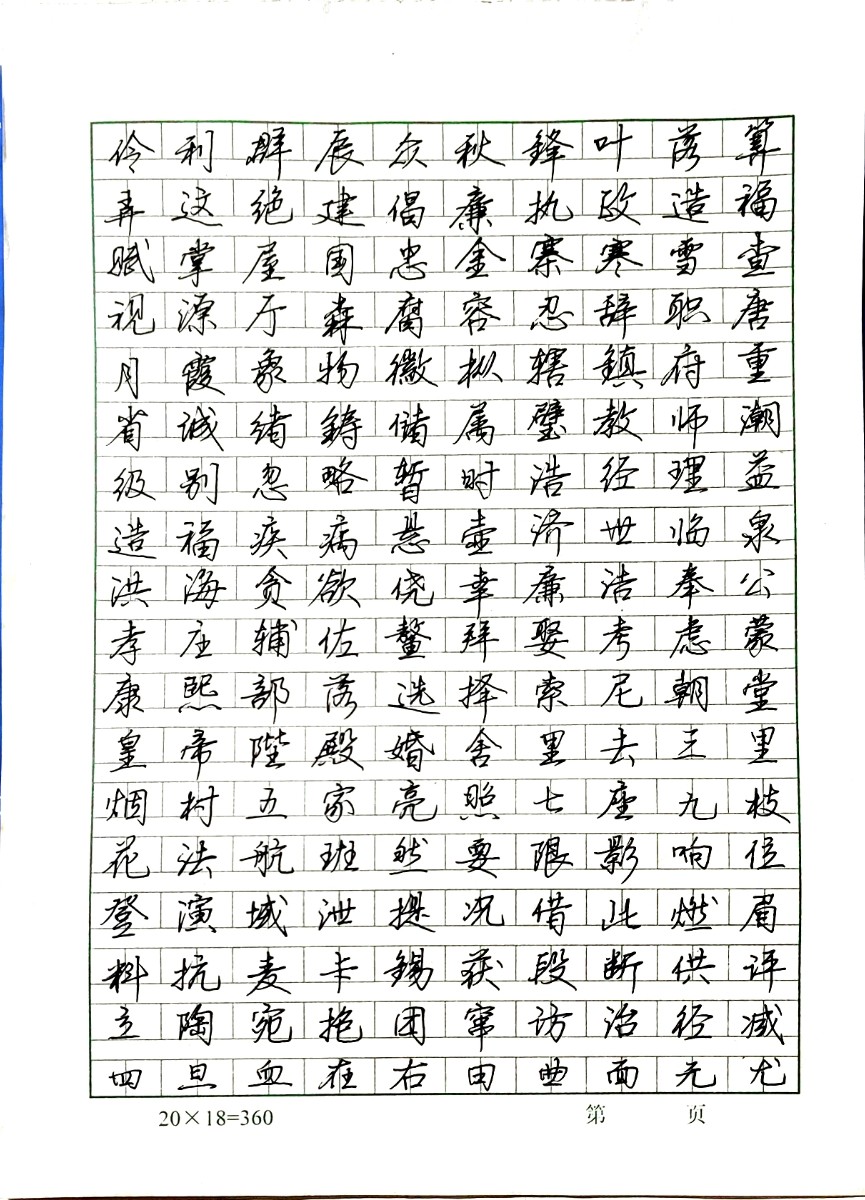 伶利群辰众秋锋叶落算
弄这绝建倡廉执政造福
赋掌屋国忠金寨寒雪查
视源厅森腐容忍辞职唐
月霞象物徽枞辖鎮府重
省诚绪鋳储属璧教师潮
级别忽略暂时浩经理益
造福疾病悬壶济世临泉
洪海贪欲侥幸廉洁奉公
孝庄辅佐鳌拜娶考虑蒙
康熙部落选择索尼朝堂
皇帝陛殿婚舍里去三里
烟村五家亮照七座九枝
花法航班然要限影响位
登演域泄提况借此燃眉
料抗麦卡錫获段断供评
立陶宛抱团窜访治径减
四旦血在右由曲面元尤
20×18=360 第 页